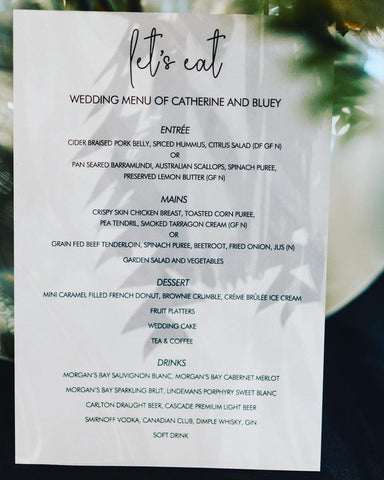 let's eat
WEDDING MENU OF CATHERINE AND BLUEY
ENTRÉE
CIDER BRAISED PORK BELLY, SPICED HUMMUS, CITRUS SALAD (DF GF N)
OR
PAN SEARED BARRAMUNDI, AUSTRALIAN SCALLOPS, SPINACH PUREE,
PRESERVED LEMON BUTTER (GF N)
MAINS
CRISPY SKIN CHICKEN BREAST, TOASTED CORN PUREE,
PEA TENDRIL, SMOKED TARRAGON CREAM (GF N)
OR
GRAIN FED BEEF TENDERLOIN, SPINACH PUREE, BEETROOT, FRIED ONION, JUS (N)
GARDEN SALAD AND VEGETABLES
DESSERT
MINI CARAMEL FILLED FRENCH DONUT, BROWNIE CRUMBLE, CRÉME BRÛLÉE ICE CREAM
FRUIT PLATTERS
WEDDING CAKE
TEA & COFFEE
DRINKS
MORGAN'S BAY SAUVIGNON BLANC, MORGAN'S BAY CABERNET MERLOT
MORGAN'S BAY SPARKLING BRUT, LINDEMANS PORPHYRY SWEET BLANC
CARLTON DRAUGHT BEER, CASCADE PREMIUM LIGHT BEER
SMIRNOFF VODKA, CANADIAN CLUB, DIMPLE WHISKY, GIN
SOFT DRINK